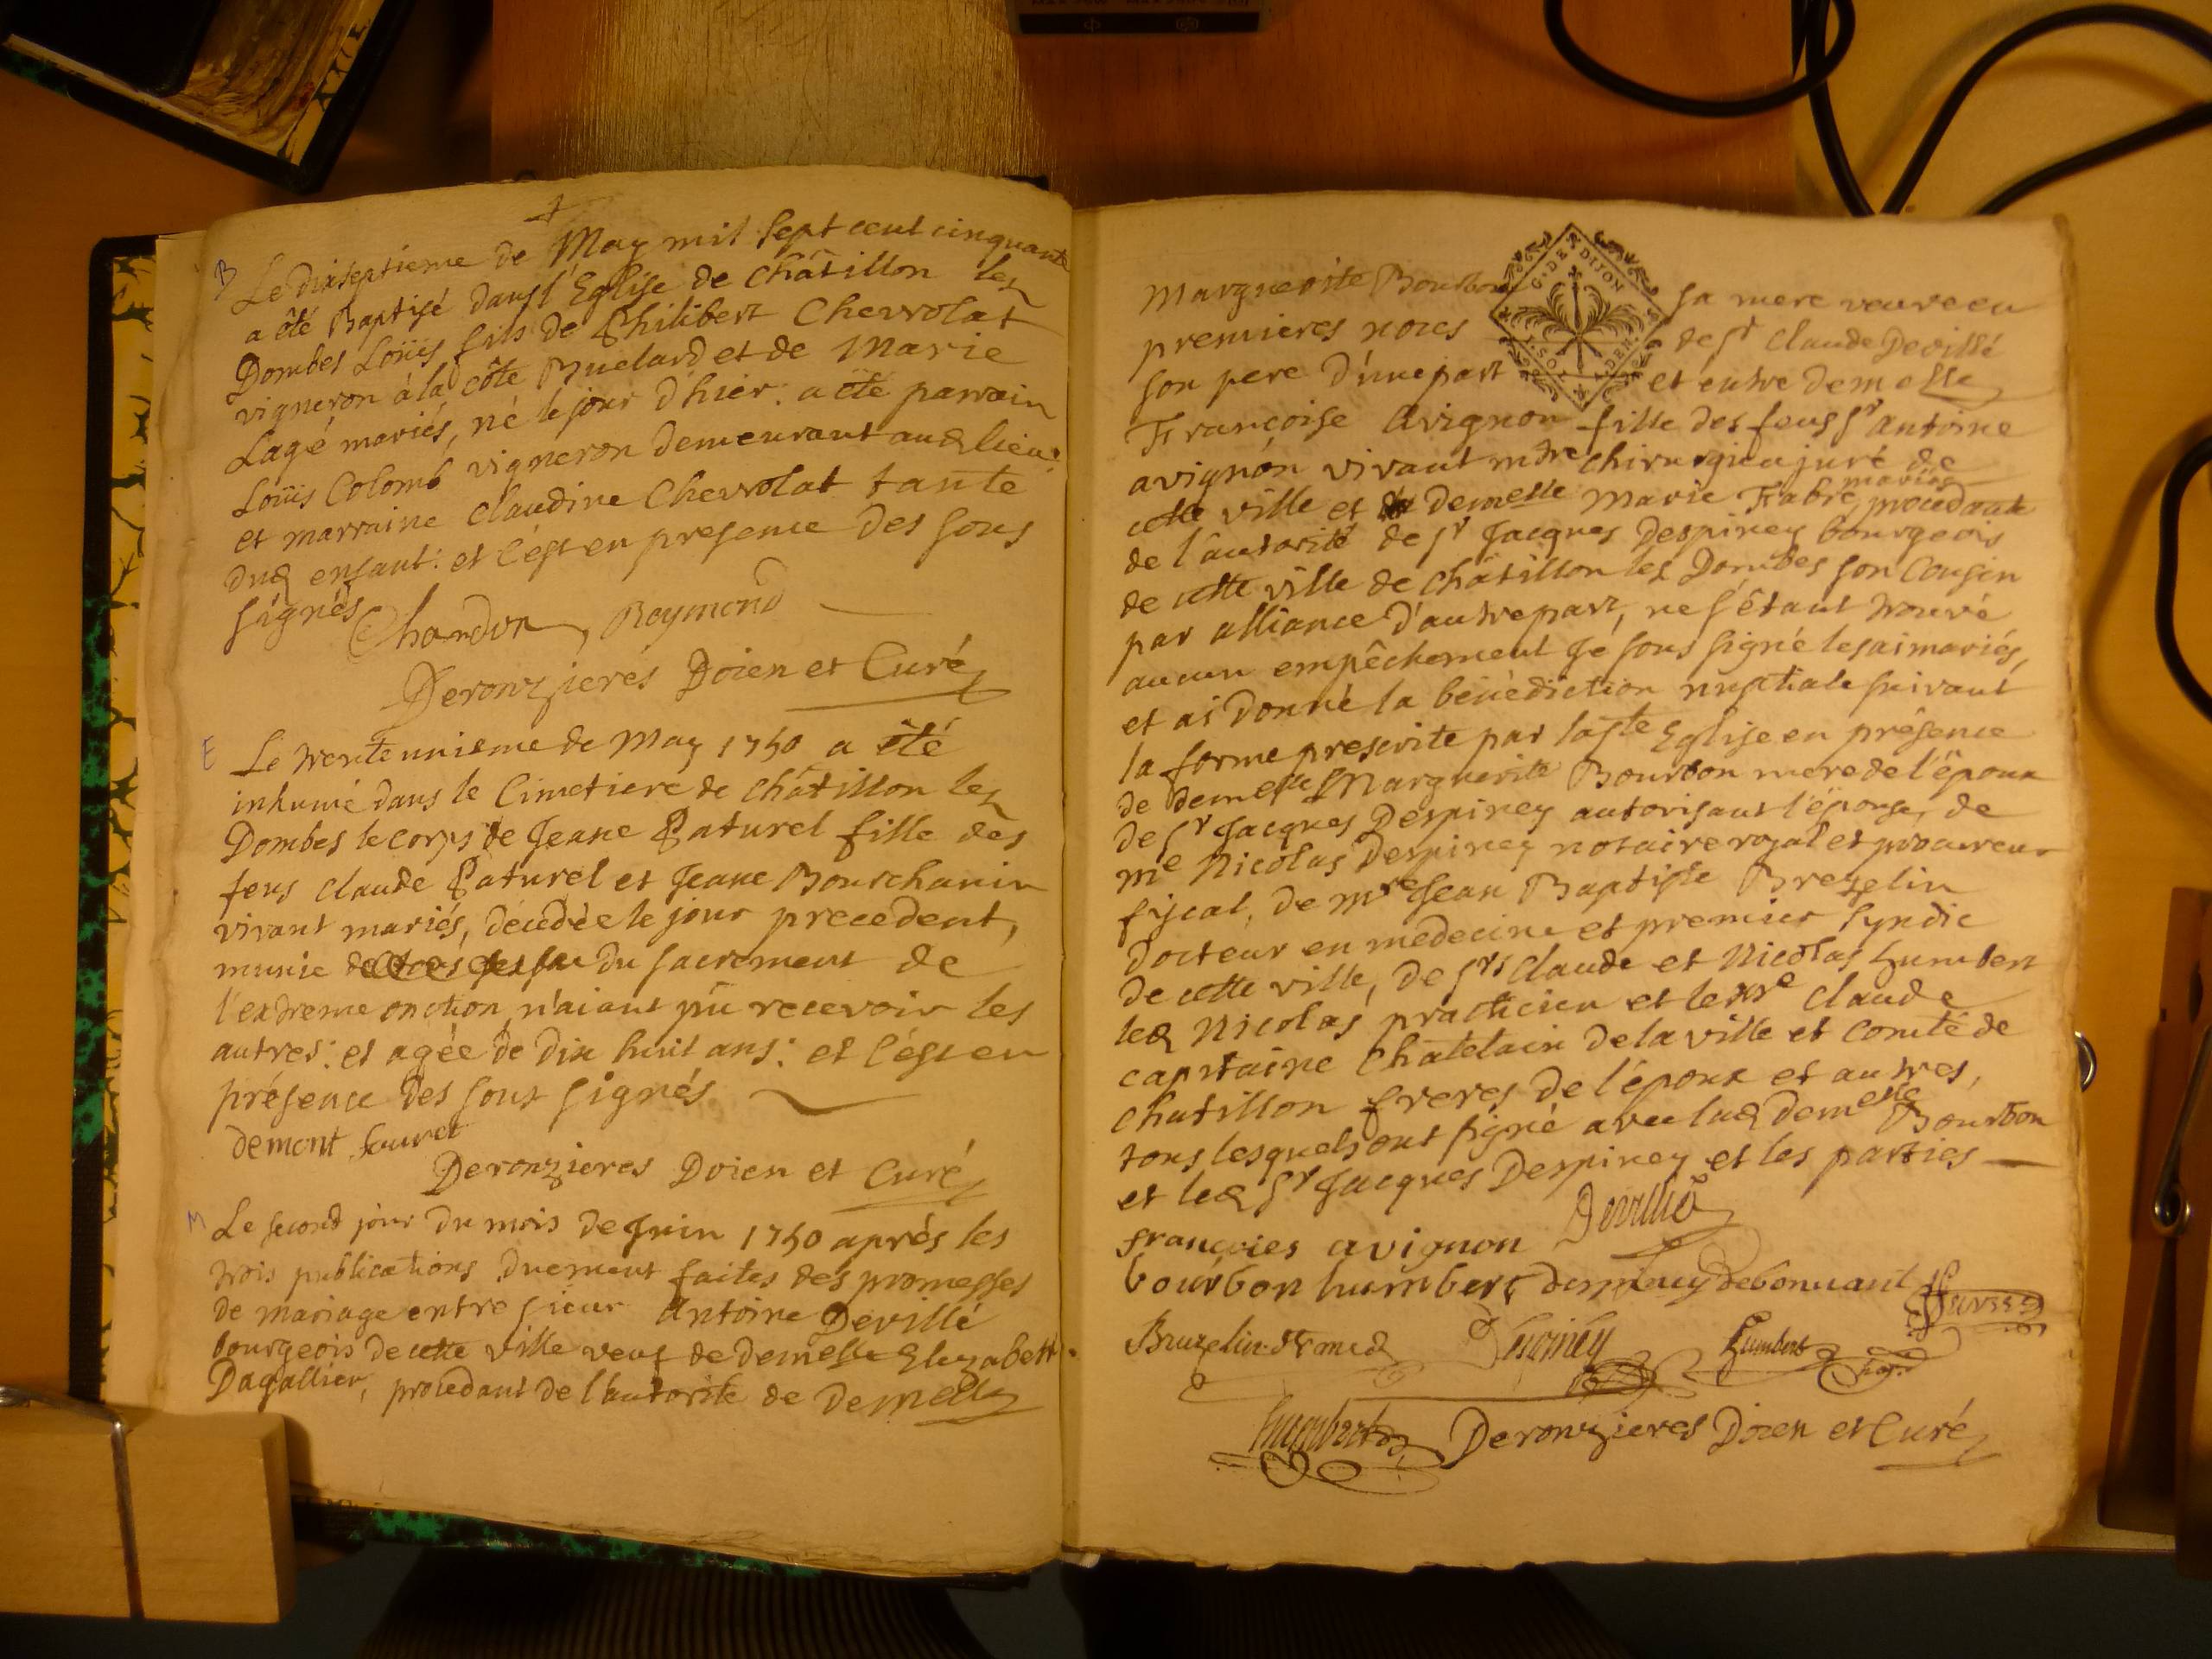 B
Le dixseptieme de May mil sept cent cinquante
a été Baptisé dans l'Eglise de Châtillon les
Dombes Loüis fils de Philibert Chevrolat
vigneron à la côte Buelard et de Marie
Lagé mariés, né le jour d'hier: a été parrain
Loüis Colomb vigneron demeurant aud lieu:
et marraine Claudine Chevrolat tante
dud enfant: et c'est en presence des sous
signés
Chardon, Raymond
Deronzierés Doien et Curé
E
Le trente unieme de May 1750 a été
inhumé dans le Cimetiere de châtillon les
Dombes le corps de Jeane Paturel fille des
feus Claude Paturel et Jeane Bourchanin
vivant mariés, décédée le jour precedent,
munie du sacrement de
l'extreme onction, n'aiant pû recevoir les
autres: et agée de dix huit ans: et c'est en
présence des sous signés.
demont Sauret
Deronzieres Doien et Curé
M
Le second jour du mois de Juin 1750 aprés les
trois publications duement faites des promesses
de mariage entre sieur Antoine Devillé
bourgeois de cette ville veuf de demelle Elizabeth
Dagallier, procedant de l'autorité de demelle
Marguerite Bourbon sa mere veuve en
G. DE DIJON
premieres noces de Sr Claude Devillé
1. SOL DEN.
son pere d'une part et entre demelle
Françoise Avignon fille des feus Sr Antoine
avignon vivant mtre chirurgien juré de
cette ville et demelle Marie Fabre, mariés procedante
de l'autorité de Sr Jacques Despiney bourgeois
de cette ville de châtillon les Dombes son Cousin
par alliance d'autre part, ne s'étant trouvé
aucun empêchement Je sous signé les ai mariés,
et ai donné la bénédiction nuptiale suivant
la forme prescrite par la ste Eglise en présence
de demelle Marguerite Bourbon mere de l'époux
de Sr Jacques Despiney autorisant l'épouse, de
me Nicolas Despiney notaire royal et procureur
fiscal, de mre Jean Baptiste Brezelin
Docteur en medecine et premier syndic
de cette ville, de Srs Claude et Nicolas humbert
led Nicolas practicien et led Claude
capitaine Châtelain de la ville et Comté de
chatillon freres de l'époux et autres,
tous lesquels ont signé avec lad demelle Bourbon
et led Sr Jacques Despiney et les parties
Devillé
françoies avignon
bourbon humbert despiney debonnant
Bruzelin Dr med Despiney humbert
humbert Deronzieres Doien et Curé